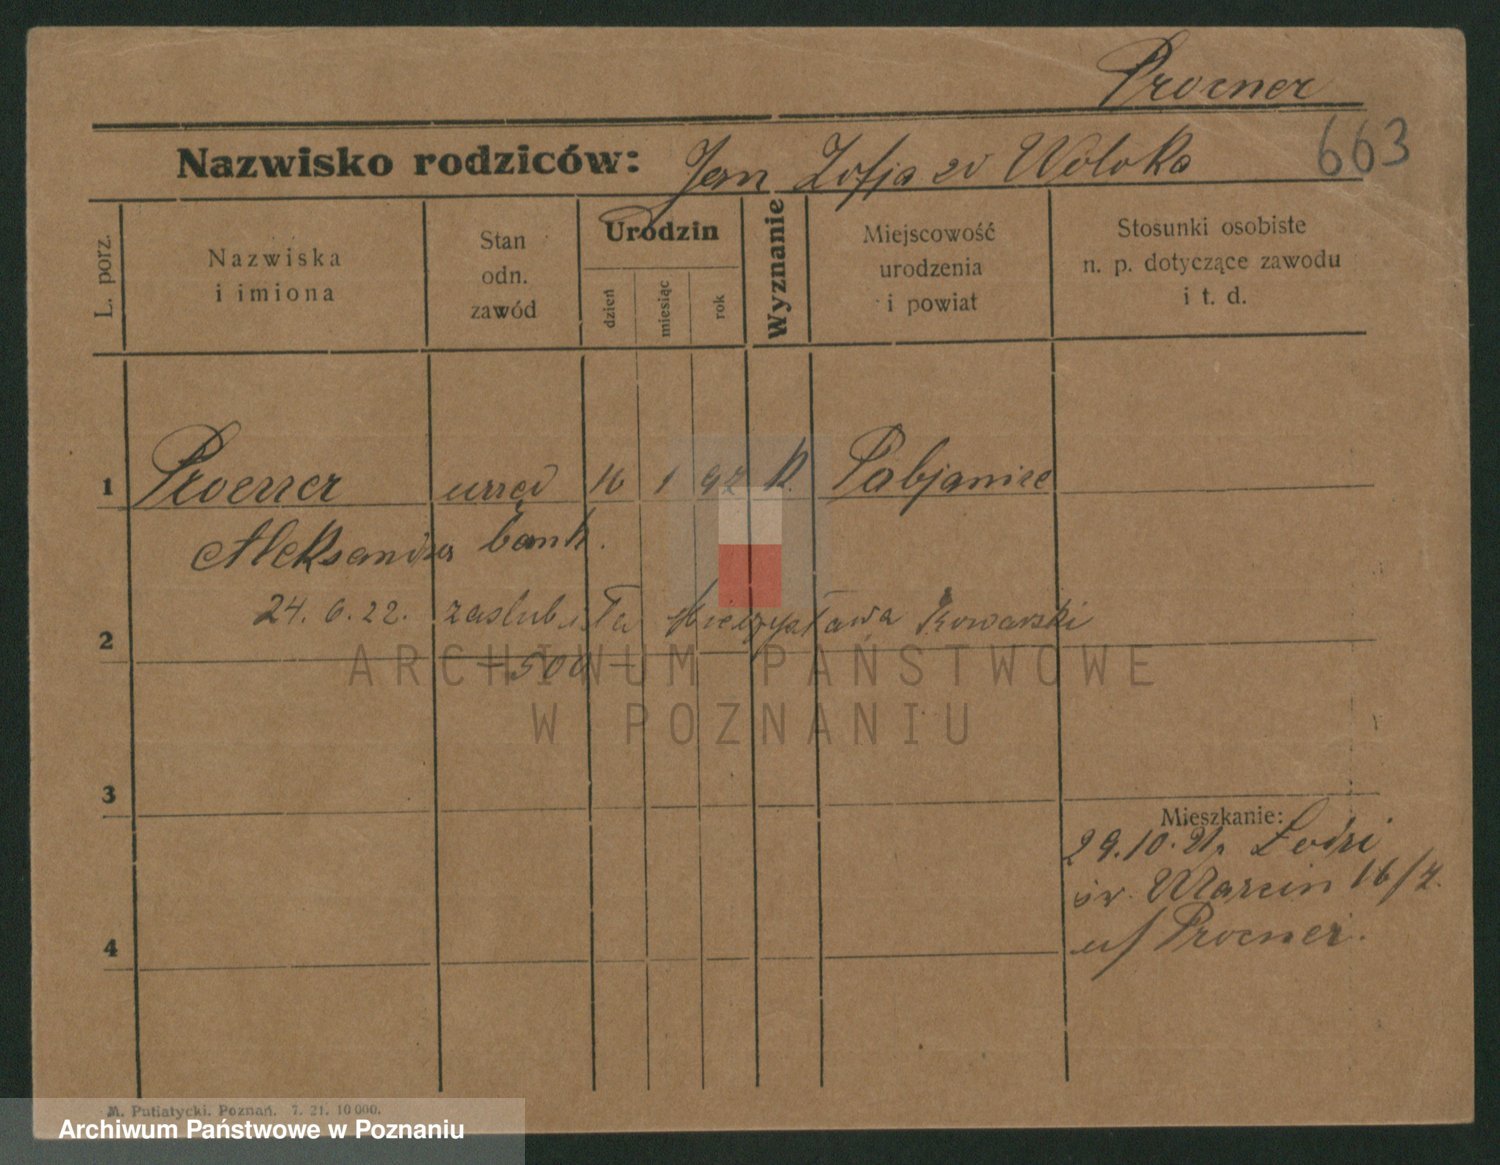 Procner
663
Nazwisko rodziców: Jan Zofja zd Woloka
L. porz.
Nazwiska
i imiona
Stan
odn.
zawód
Urodzin
dzień
miesiąc
rok
Wyznanie
Miejscowość
urodzenia
i powiat
Stosunki osobiste
n. p. dotyczące zawodu
i t. d.
1 Procner urzęd 16 1 97 K. Pabjanice
Aleksandra bank.
24. 6. 22. zaslubiła Mieczysława Kowarski
2
ARCHIWUM PAŃSTWOWE
W POZNANIU
3
Mieszkanie:
29.10.21. Łodzi
św. Marcin 16/7.
u/ Procner.
4
M. Putiatycki, Poznań. 7. 21. 10 000.
Archiwum Państwowe w Poznaniu